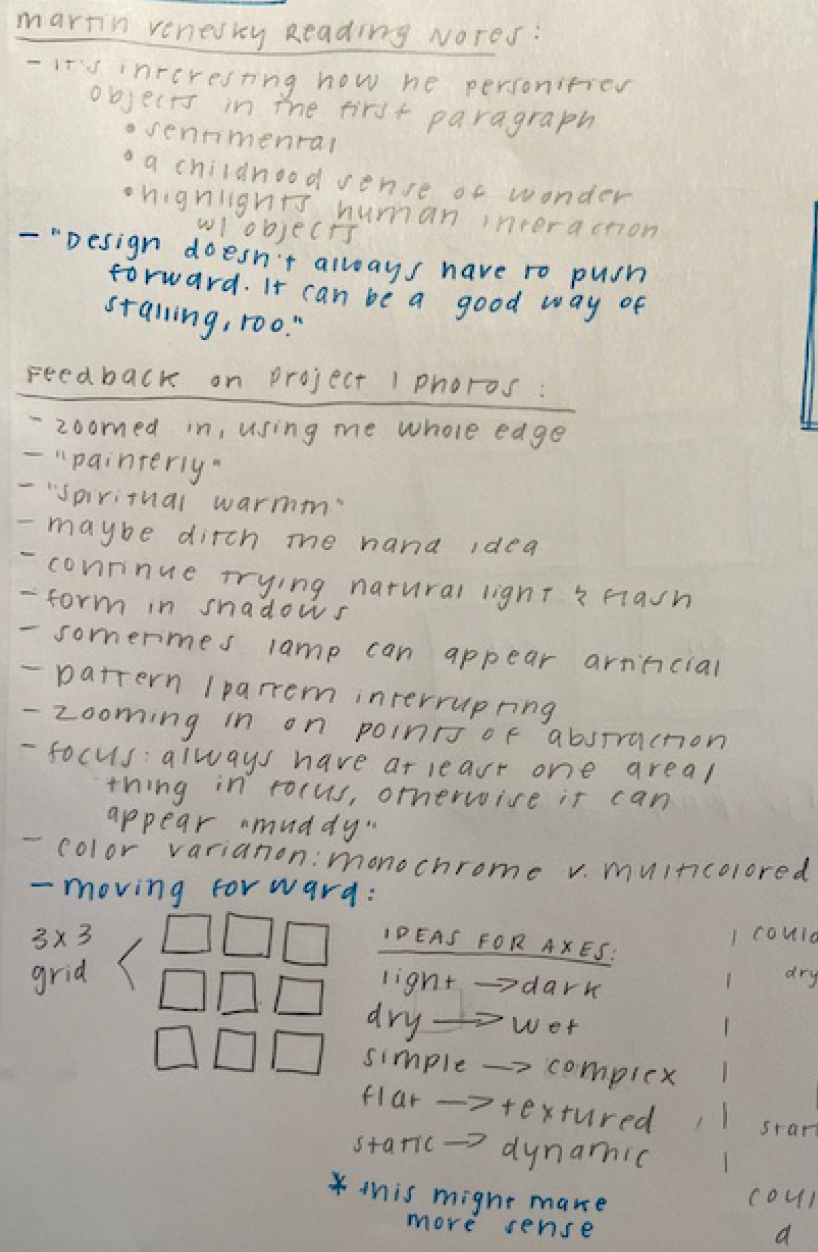 martin venesky Reading Notes:
- It's interesting how he personifies
objects in the first paragraph
• sentimental
• a childhood sense of wonder
• highlights human interaction
w/ objects
- "Design doesn't always have to push
forward. It can be a good way of
stalling, too."
Feedback on Project 1 photos:
- zoomed in, using the whole edge
- "painterly"
- "spiritual warmth"
- maybe ditch the hand idea
- continue trying natural light & flash
- form in shadows
- sometimes lamp can appear artificial
- pattern / pattern interrupting
- zooming in on points of abstraction
- focus: always have at least one area/
thing in focus, otherwise it can
appear "muddy"
- color variation: monochrome v. multicolored
- moving forward:
3x3
grid
IDEAS FOR AXES:
light → dark
dry → wet
simple → complex
flat → textured
static → dynamic
* this might make
more sense
could
dry
start
coul
a